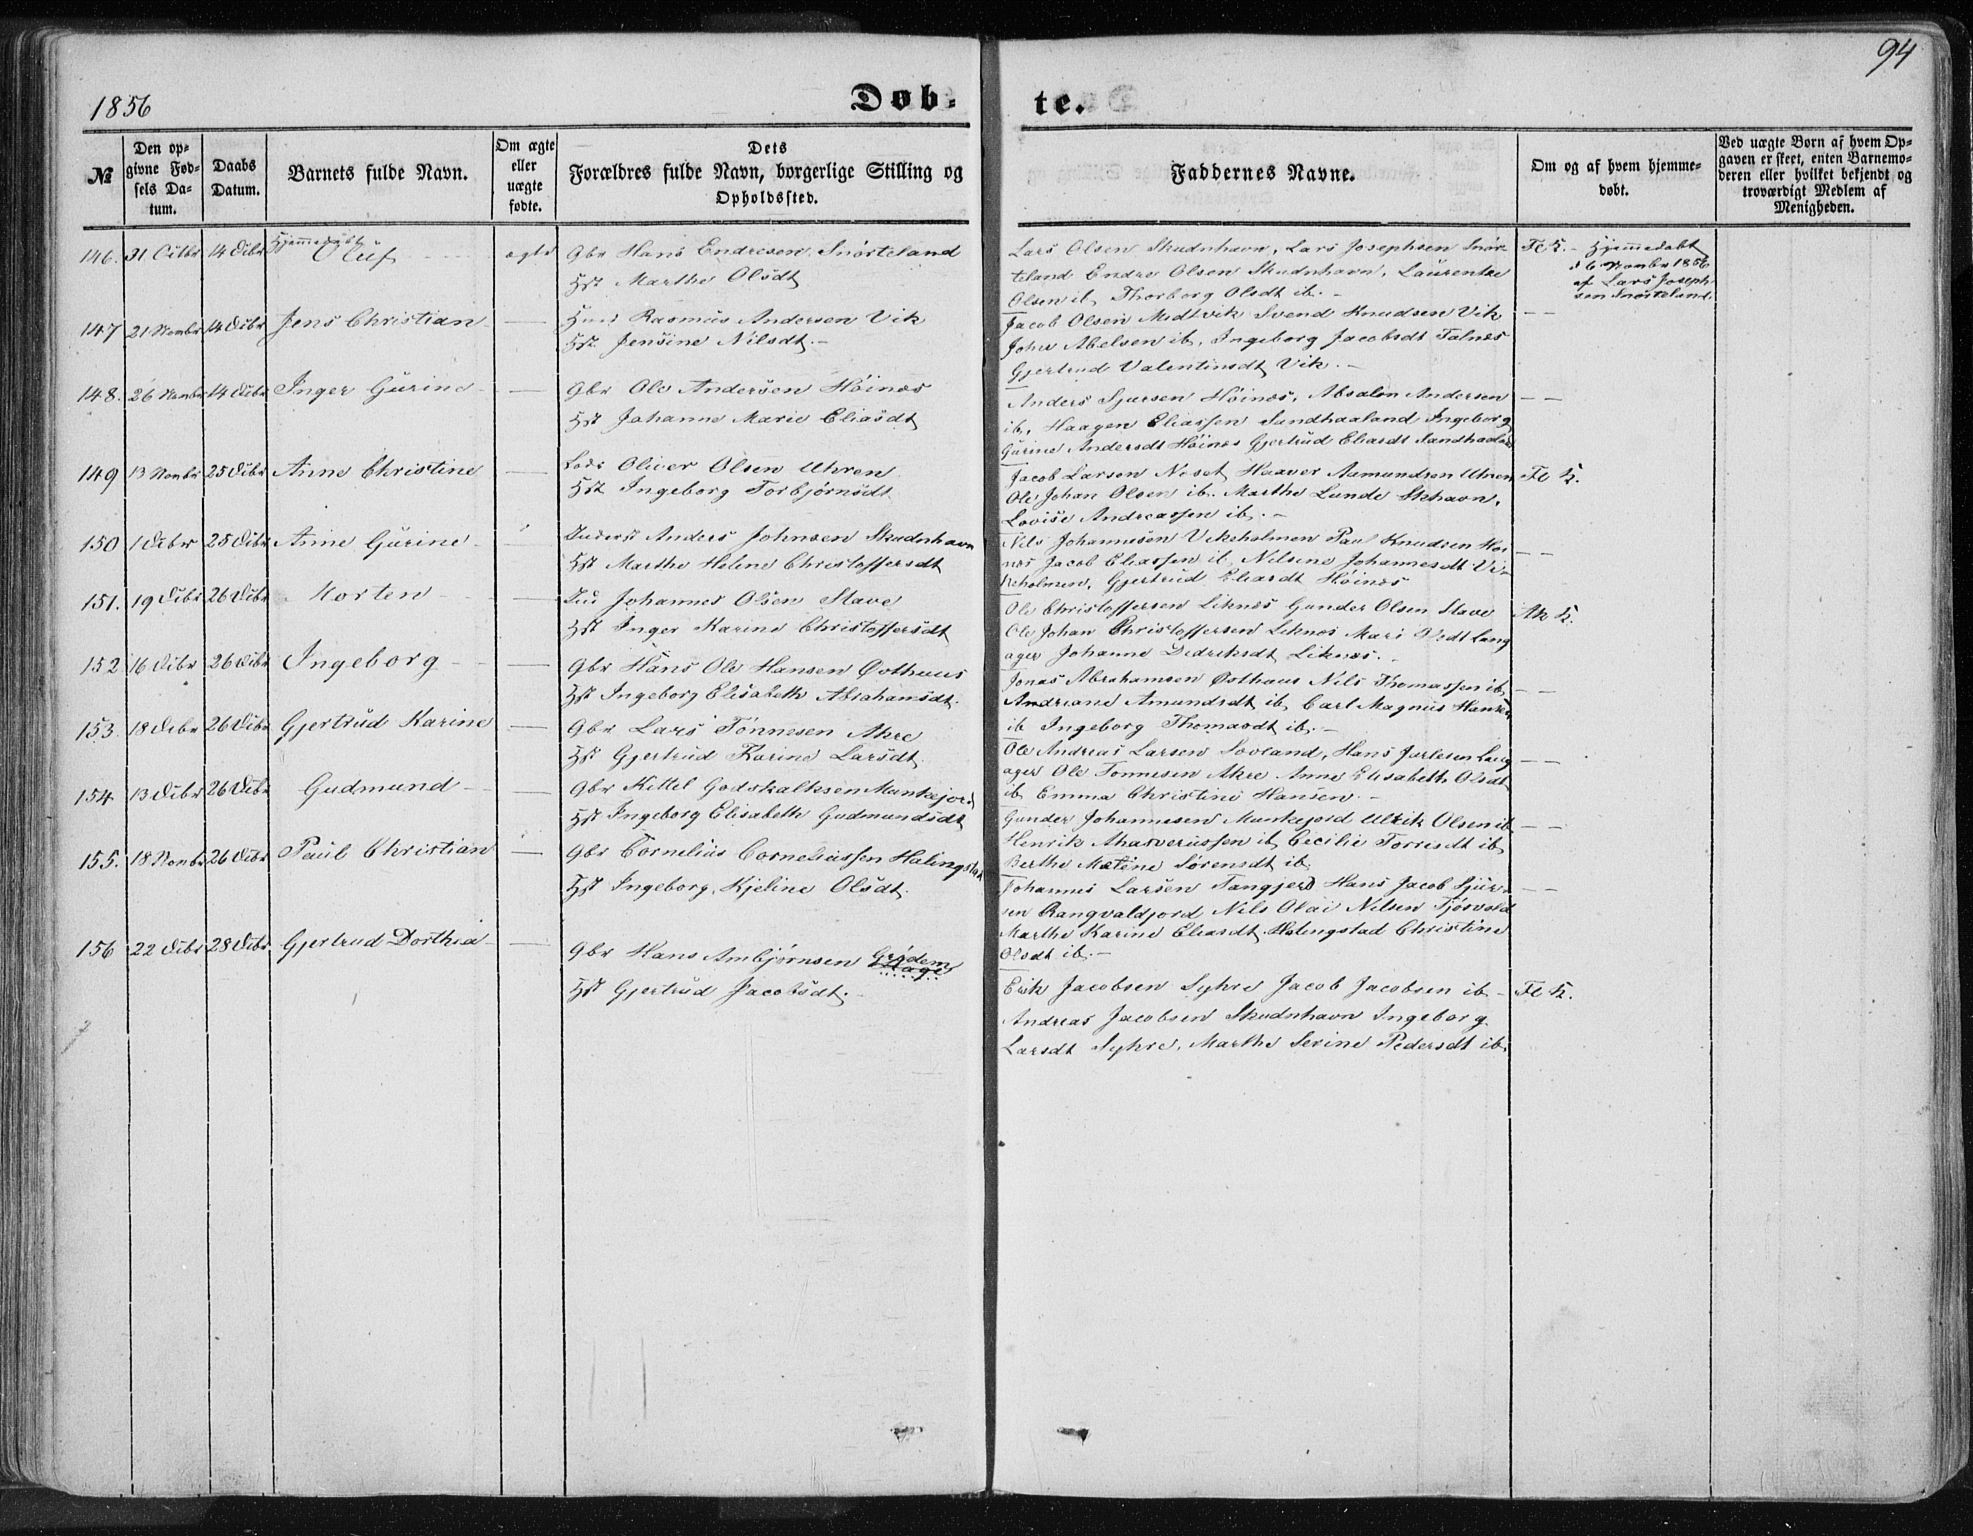 94
1856
Døb-
te.
№
Den op-
givne Fød-
sels Da-
tum.
Daabs
Datum.
Barnets fulde Navn.
Om ægte
eller
uægte
fødte.
Dets
Forældres fulde Navn, borgerlige Stilling og
Opholdssted.
Faddernes Navne.
Om og af hvem hjemme-
døbt.
Ved uægte Børn af hvem Op-
gaven er skeet, enten Barnemo-
deren eller hvilket bekjendt og
troværdigt Medlem af
Menigheden.
146. 31 Octbr 14 Decbr Hjemmedøbt
Oluf ægte Gbr Hans Endresen Snørteland
Hst Marthe Olsdt
Lars Olsen Skudnhavn, Lars Josephsen Snør-
teland Endre Olsen Skudnhavn, Laurentze
Olsen ib, Thorborg Olsdt ib. -
Fl K. - Hjemmedøbt
d 6 Novmbr 1856
af Lars Joseph-
sen Snørteland.
147 21 Novmbr 14 Decbr Jens Christian — Rasmus Andersen Vik
Hst. Jensine Nilsdt. -
Jacob Olsen Medtvik Svend Knudsen Vik — —
John Abelsen ib, Ingeborg Jacobsdt Falnes
Gjertrud Valentinsdt Vik. -
148. 26 Novmbr 14 Decbr Inger Gurine — Gbr Ole Andersen Høines
Hst Johanne Marie Eliasdt
Anders Sjursen Høines, Absalon Andersen — —
ib, Haagen Eliassen Sandhaaland Ingeborg
Gurine Andersdt Høines Gjertrud Eliasdt
149 13 Novmbr 25 Decbr Anne Christine — Lods Oliver Olsen Uhren
Hst Ingeborg Torbjørnsdt
Jacob Larsen Neset Haaver Aamundsen Uhren Fl K.
Ole Johan Olsen ib. Marthe Lunde Skhavn,
Lovise Andreassen ib. -
150 1 Decbr 25 Decbr Anne Gurine — Inderst Anders Johnsen Skudnhavn
Hst Marthe Helene Christoffersdt
Nils Johannesen Vikeholmen Paul Knudsen Høi- — —
nes Jacob Eliassen ib, Nilsine Johannesdt Vi-
keholmen, Gjertrud Eliasdt Høines
151. 19 Decbr 26 Decbr Morten — Ind Johannes Olsen Stave
Hst Inger Karine Christoffersdt
Ole Christoffersen Liknes Gunder Olsen Stave Ak K.
Ole Johan Christoffersen Liknes Mari Olsdt Lang
ager Johanne Dedriksdt Liknes. -
152 16 Decbr 26 Decbr Ingeborg — Gbr Hans Ole Hansen Østhuus
Hst Ingeborg Elisabeth Abrahamsdt.
Jonas Abrahamsen Østhuus Nils Thomassen ib, — —
Andreane Amundsdt ib, Carl Magnus Hansen
ib Ingeborg Thomasdt ib. -
153. 18 Decbr 26 Decbr Gjertrud Karine — Gbr Lars Tønnesen Ahre
Hst Gjertrud Karine Larsdt.
Ole Andreas Larsen Søvland, Hans Jarlesen Lang — —
ager Ole Tønnesen Ahre Anne Elisabeth Olsdt
ib Emma Christine Hansen. -
154 13 Decbr 26 Decbr Gudmund — Gbr Kittel Godskalksen Munkejord
Hst Ingeborg Elisabeth Gudmundsdt
Gunder Johannesen Munkejord Ulrik Olsen ib — —
Henrik Ahasverussen ib Cecilie Torresdt ib
Berthe Matene Sørensdt ib.
155. 18 Novmbr 26 Decbr Paul Christian — Gbr Cornelius Corneliussen Halingstad
Hst Ingeborg Kjeline Olsdt.
Johannes Larsen Tangjerd Hans Jacob Sjur- — —
sen Rangvaldjord Nils Olai Nilsen Tjøsvold
Marthe Karine Eliasdt Halingstad Christine
Olsdt ib. -
156 22 Decbr 28 Decbr. Gjertrud Dorthea — Gbr Hans Ambjørnsen Grødem
Hst Gjertrud Jacobsdt. -
Erik Jacobsen Syhre Jacob Jacobsen ib - Fl K.
Andreas Jacobsen Skudnhavn Ingeborg
Larsdt Syhre, Marthe Serine Pedersdt ib.